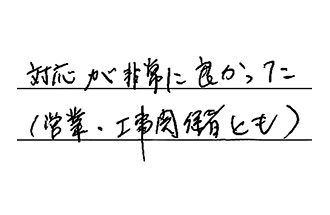 対応が非常に良かった
(営業・工事関係者とも)